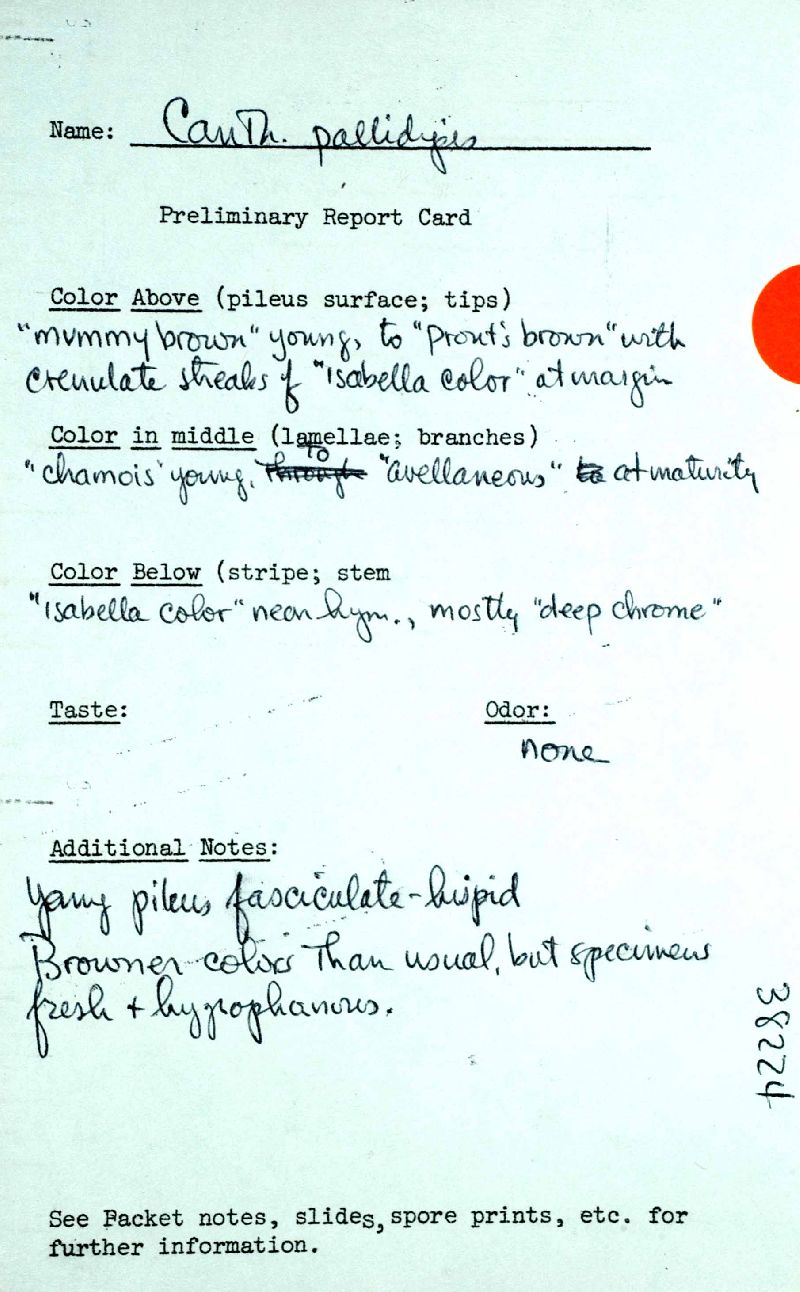 Name: Canth. pallidipes
Preliminary Report Card
Color Above (pileus surface; tips)
"mummy brown" young, to "Prout's brown" with
crenulate streaks of "Isabella color" at margin
Color in middle (lamellae; branches)
"chamois" young, through to "avellaneous" to at maturity
Color Below (stripe; stem
"Isabella color" near hym., mostly "deep chrome"
Taste: Odor:
none
Additional Notes:
Young pileus fasciculate-hispid
Browner colors than usual, but specimens
fresh + hygrophanous.
38224
See Packet notes, slides, spore prints, etc. for
further information.